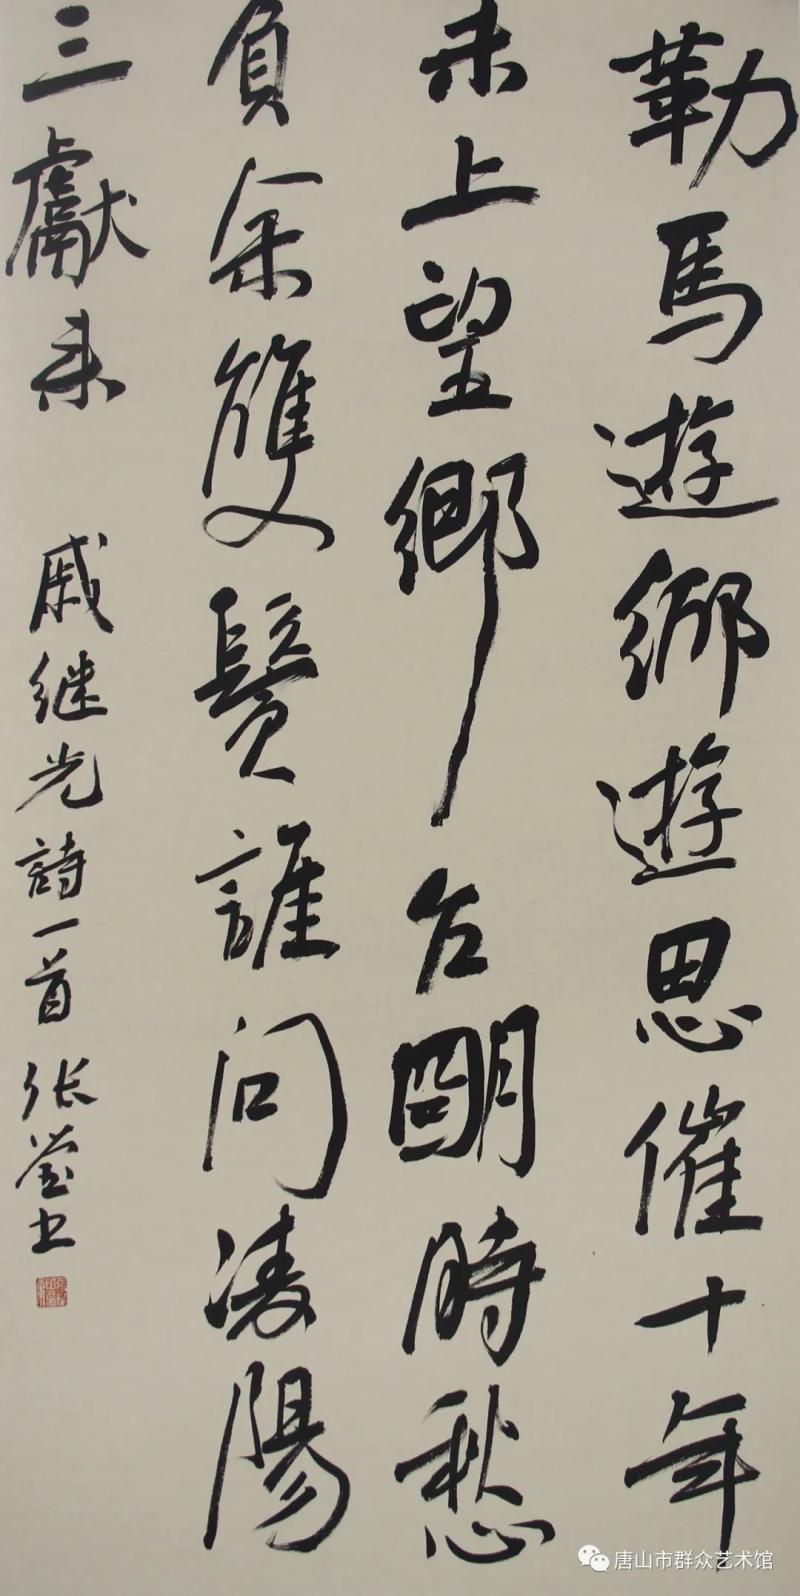 勒馬遊鄉遊思催十年
未上望鄉台明時愁
負余雙鬢誰問凌陽
三獻来 戚继光詩一首 张莹书
唐山市群众艺术馆